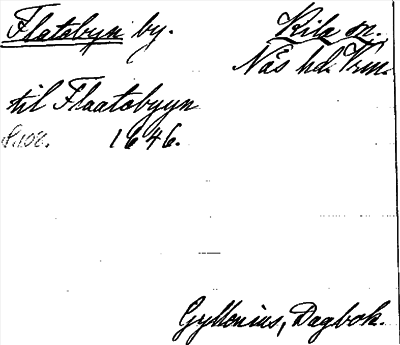 Flatsbyn by. Kila sn.,
Näs hd. Vrm.
til Flaatsbyyn
S. 102. 1646.
Gyllenius, Dagbok.